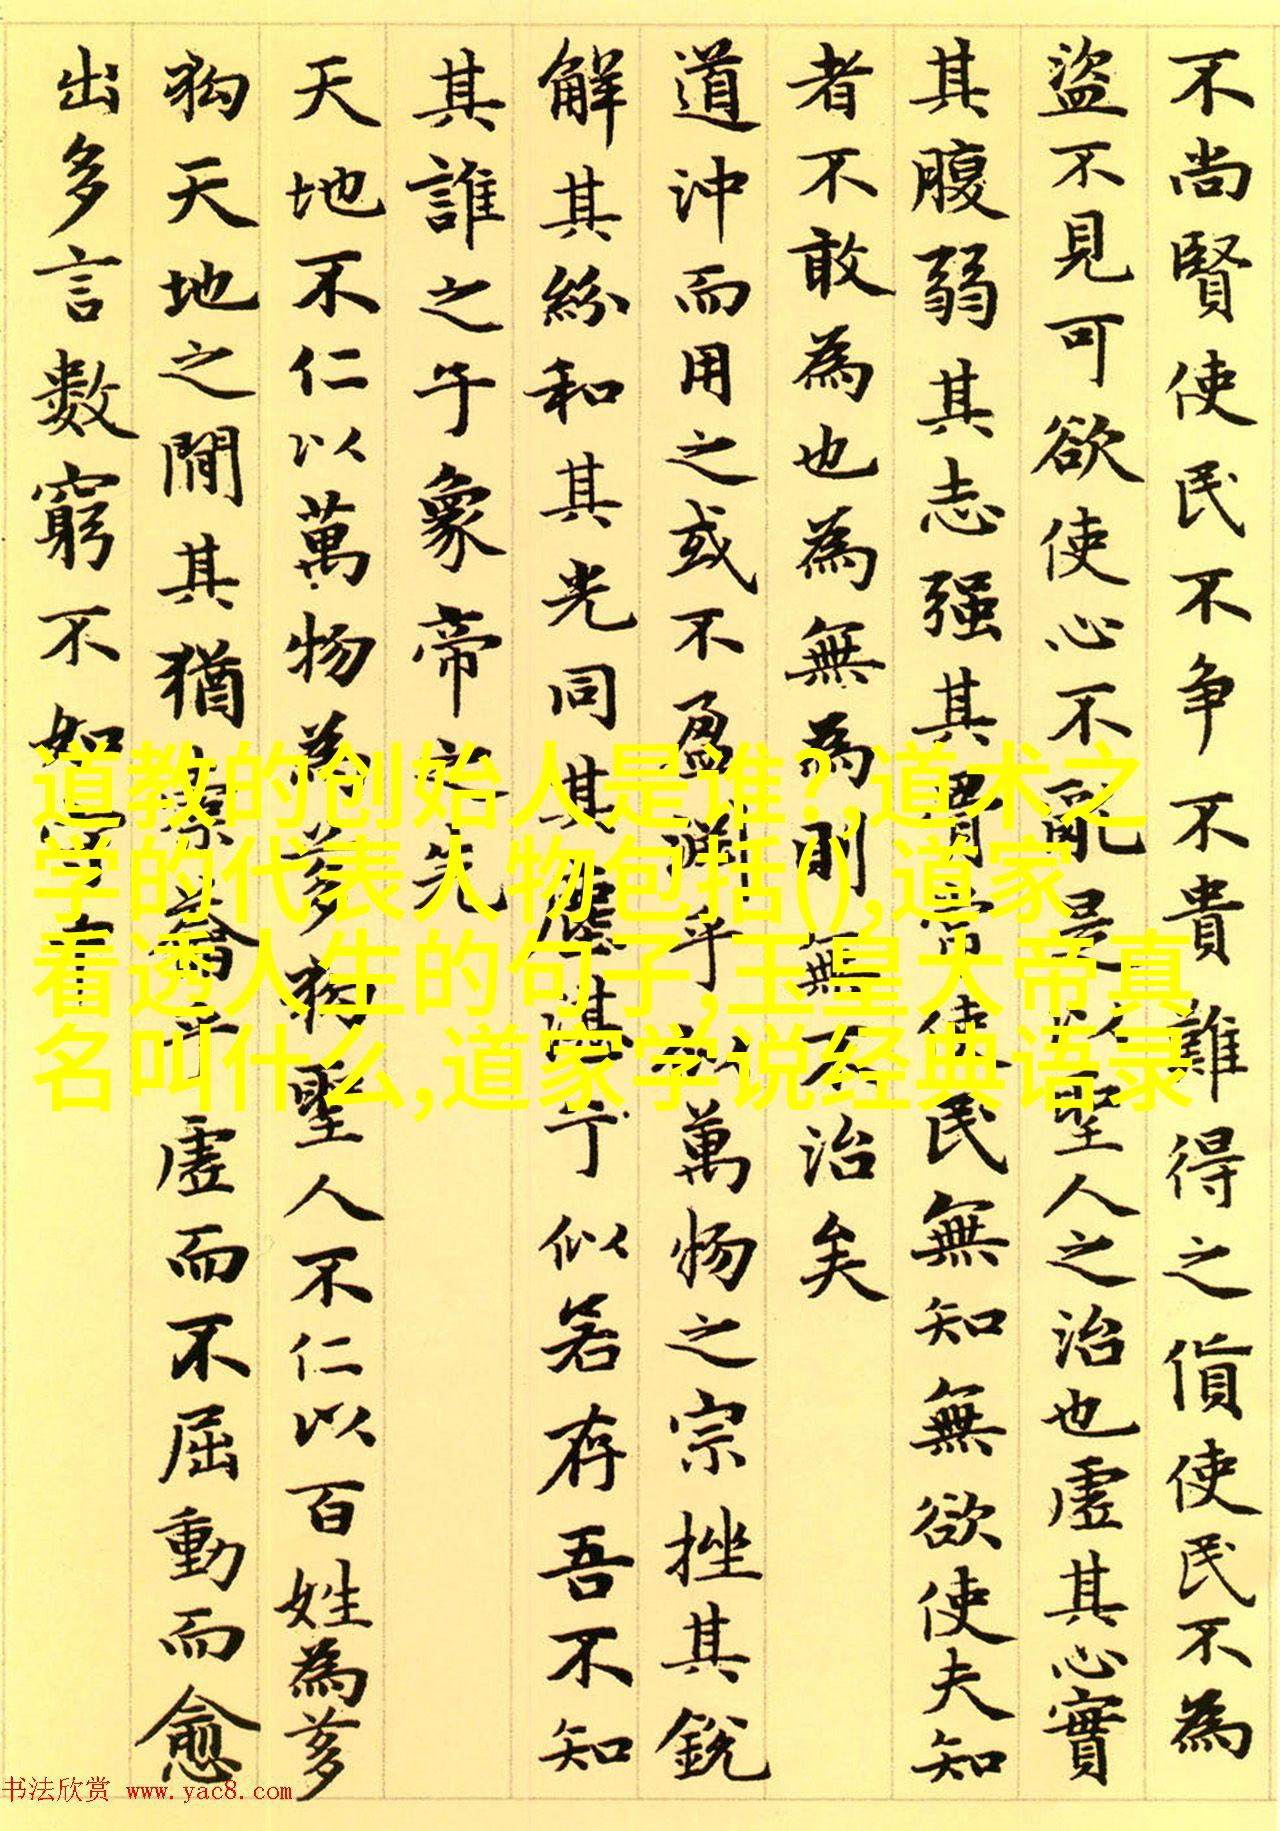 不尚賢使民不争不貴難得之貨使民不為
盜不見可欲使心不亂是以聖人之治也虛其心實
其腹弱其志强其骨常使民無知無欲使夫知
者不敢為也為無為則無不治矣
道沖而用之或不盈淵乎似萬物之宗挫其銳
解其紛和其光同其塵湛乎似若存吾不知
其誰之子象帝之先
天地不仁以萬物為芻狗聖人不仁以百姓為芻
狗天地之間其猶橐籥乎虛而不屈動而愈
出多言數窮不如守中
道教的创始人是谁?,道术之
学的代表人物包括(),道家
看透人生的句子,玉皇大帝真
名叫什么,道家学说经典语录
书法欣赏 www.yac8.com